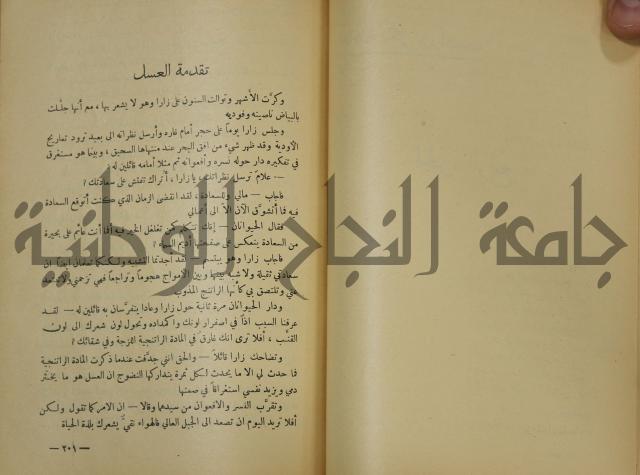 تقدمة العسل
وكرَّت الأشهر وتوالت السنون على زارا وهو لا يشعر بها، مع أنها جلَّلت
بالبياض ناصيته وفوديه
وجلس زارا يوماً على حجر أمام غاره وأرسل نظراته الى بعيد ترود تعاريج
الاودية وقد ظهر شيء من افق البحر عند منتهاها السحيق، وبينما هو مستغرق
في تفكيره دار حوله نسره وأفعوانه ثم مثلا أمامه قائلين له:
— علامَ ترسل نظراتك، يا زارا، أتراك تفتش على سعادتك؟
فأجاب — مالي وللسعادة، لقد انقضى الزمان الذي كنت أتوقع السعادة
فيه فما أتشوَّق الآن الا الى أعمالي
فقال الحيوانان — إنك تتكلم من تغلغل الخير فيه فما أنت قائم على بحيرة
من السعادة ينعكس على صفحتها أديم السماء؟
فأجاب زارا وهو يبتسم — لقد اجدتما التشبيه ولكنكما تعلمان ايضاً ان
سعادتي ثقيلة ولا شبه بينها وبين الامواج هجوماً وتراجعاً فهي تزحمني ولا تبتعد
عني وتلتصق بي كأنها الراتنج المذوب
ودار الحيوانان مرة ثانية حول زارا وعادا يتفرَّسان به قائلين له — لقد
عرفنا السبب اذاً في اصفرار لونك واكمداده وتحول لون شعرك الى لون
القنَّب، أفلا ترى انك غارق في المادة الراتنجية اللزجة وفي شقائك؟
وتضاحك زارا قائلاً — والحق انني جدَّفت عندما ذكرت المادة الراتنجية
فما حدث لي الا ما يحدث لكل ثمرة يتداركها النضوج ان العسل هو ما يخثر
دمي ويزيد نفسي استغراقاً في صمتها
وتقرَّب النسر والافعوان من سيدهما وقالا — ان الامر كما تقول ولكن
أفلا تريد اليوم ان تصعد الى الجبل العالي فالهواء نقيٌّ يشعرك بلذة الحياة
— ٢٠١ —
جامعة النجاح الوطنية